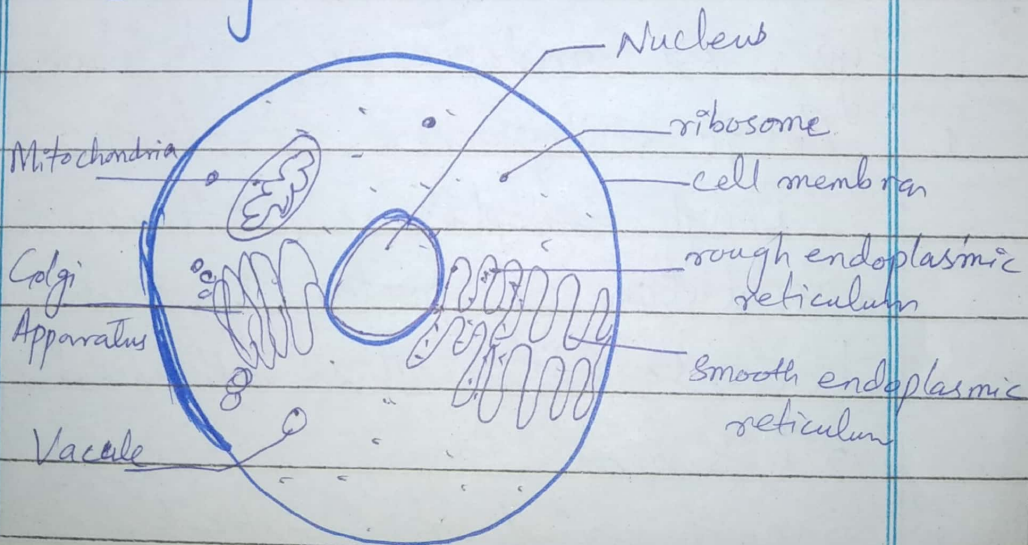 Nucleus
ribosome
cell membran
rough endoplasmic
reticulum
smooth endoplasmic
reticulum
Mitochondria
Golgi
Apparatus
Vacule